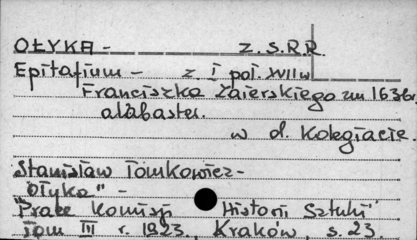 OŁYKA - Z.S.R.R.
Epitafium - z I poł. XVII w
Franciszka Zaierskiego zm 1636r.
alabaster.
w d. Kolegiacie.
Stanisław Tomkowicz -
"Ołyka" -
"Prace Komisji Historii Sztuki"
Tom III r. 1923, Kraków, s. 23.